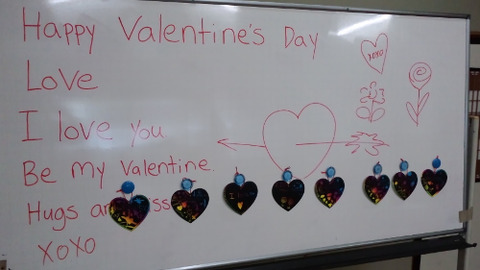 Happy Valentine's Day
Love
I love you.
Be my Valentine.
Hugs an ss
XOXO
XOXO